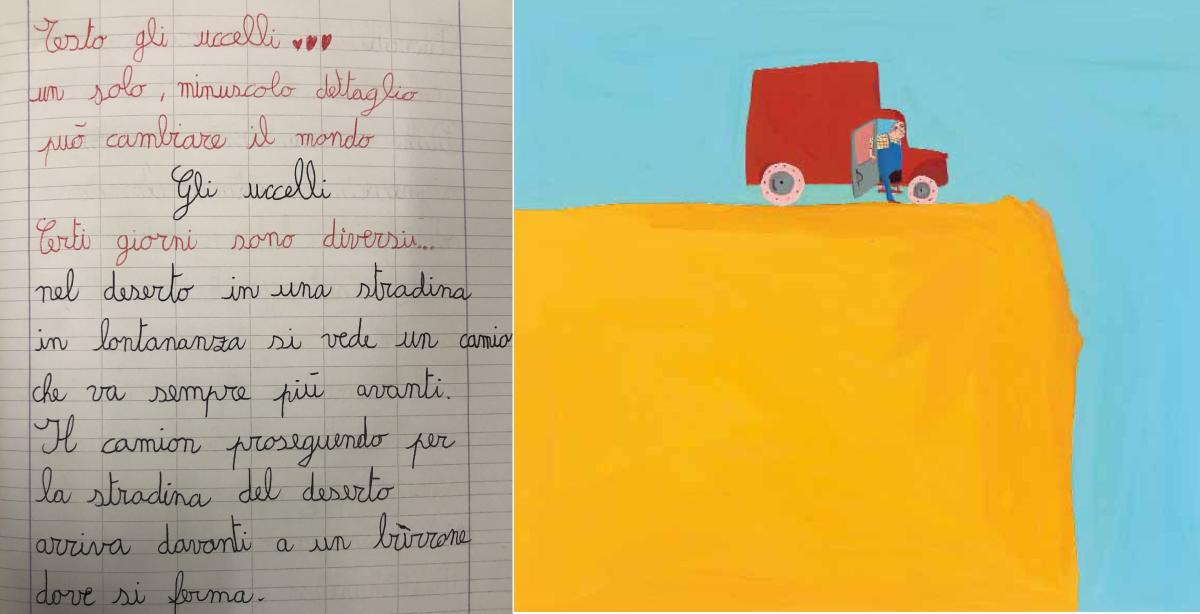 Testo gli uccelli
un solo, minuscolo dettaglio
può cambiare il mondo
Gli uccelli
Certi giorni sono diversi...
nel deserto in una stradina
in lontananza si vede un camio
che va sempre più avanti.
Il camion proseguendo per
la stradina del deserto
arriva davanti a un
dove si ferma.